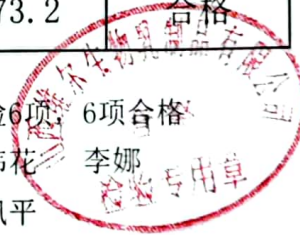 73.2 合格
检6项，6项合格
花 李娜
平
尔生物乳制品有限公司
检验专用章